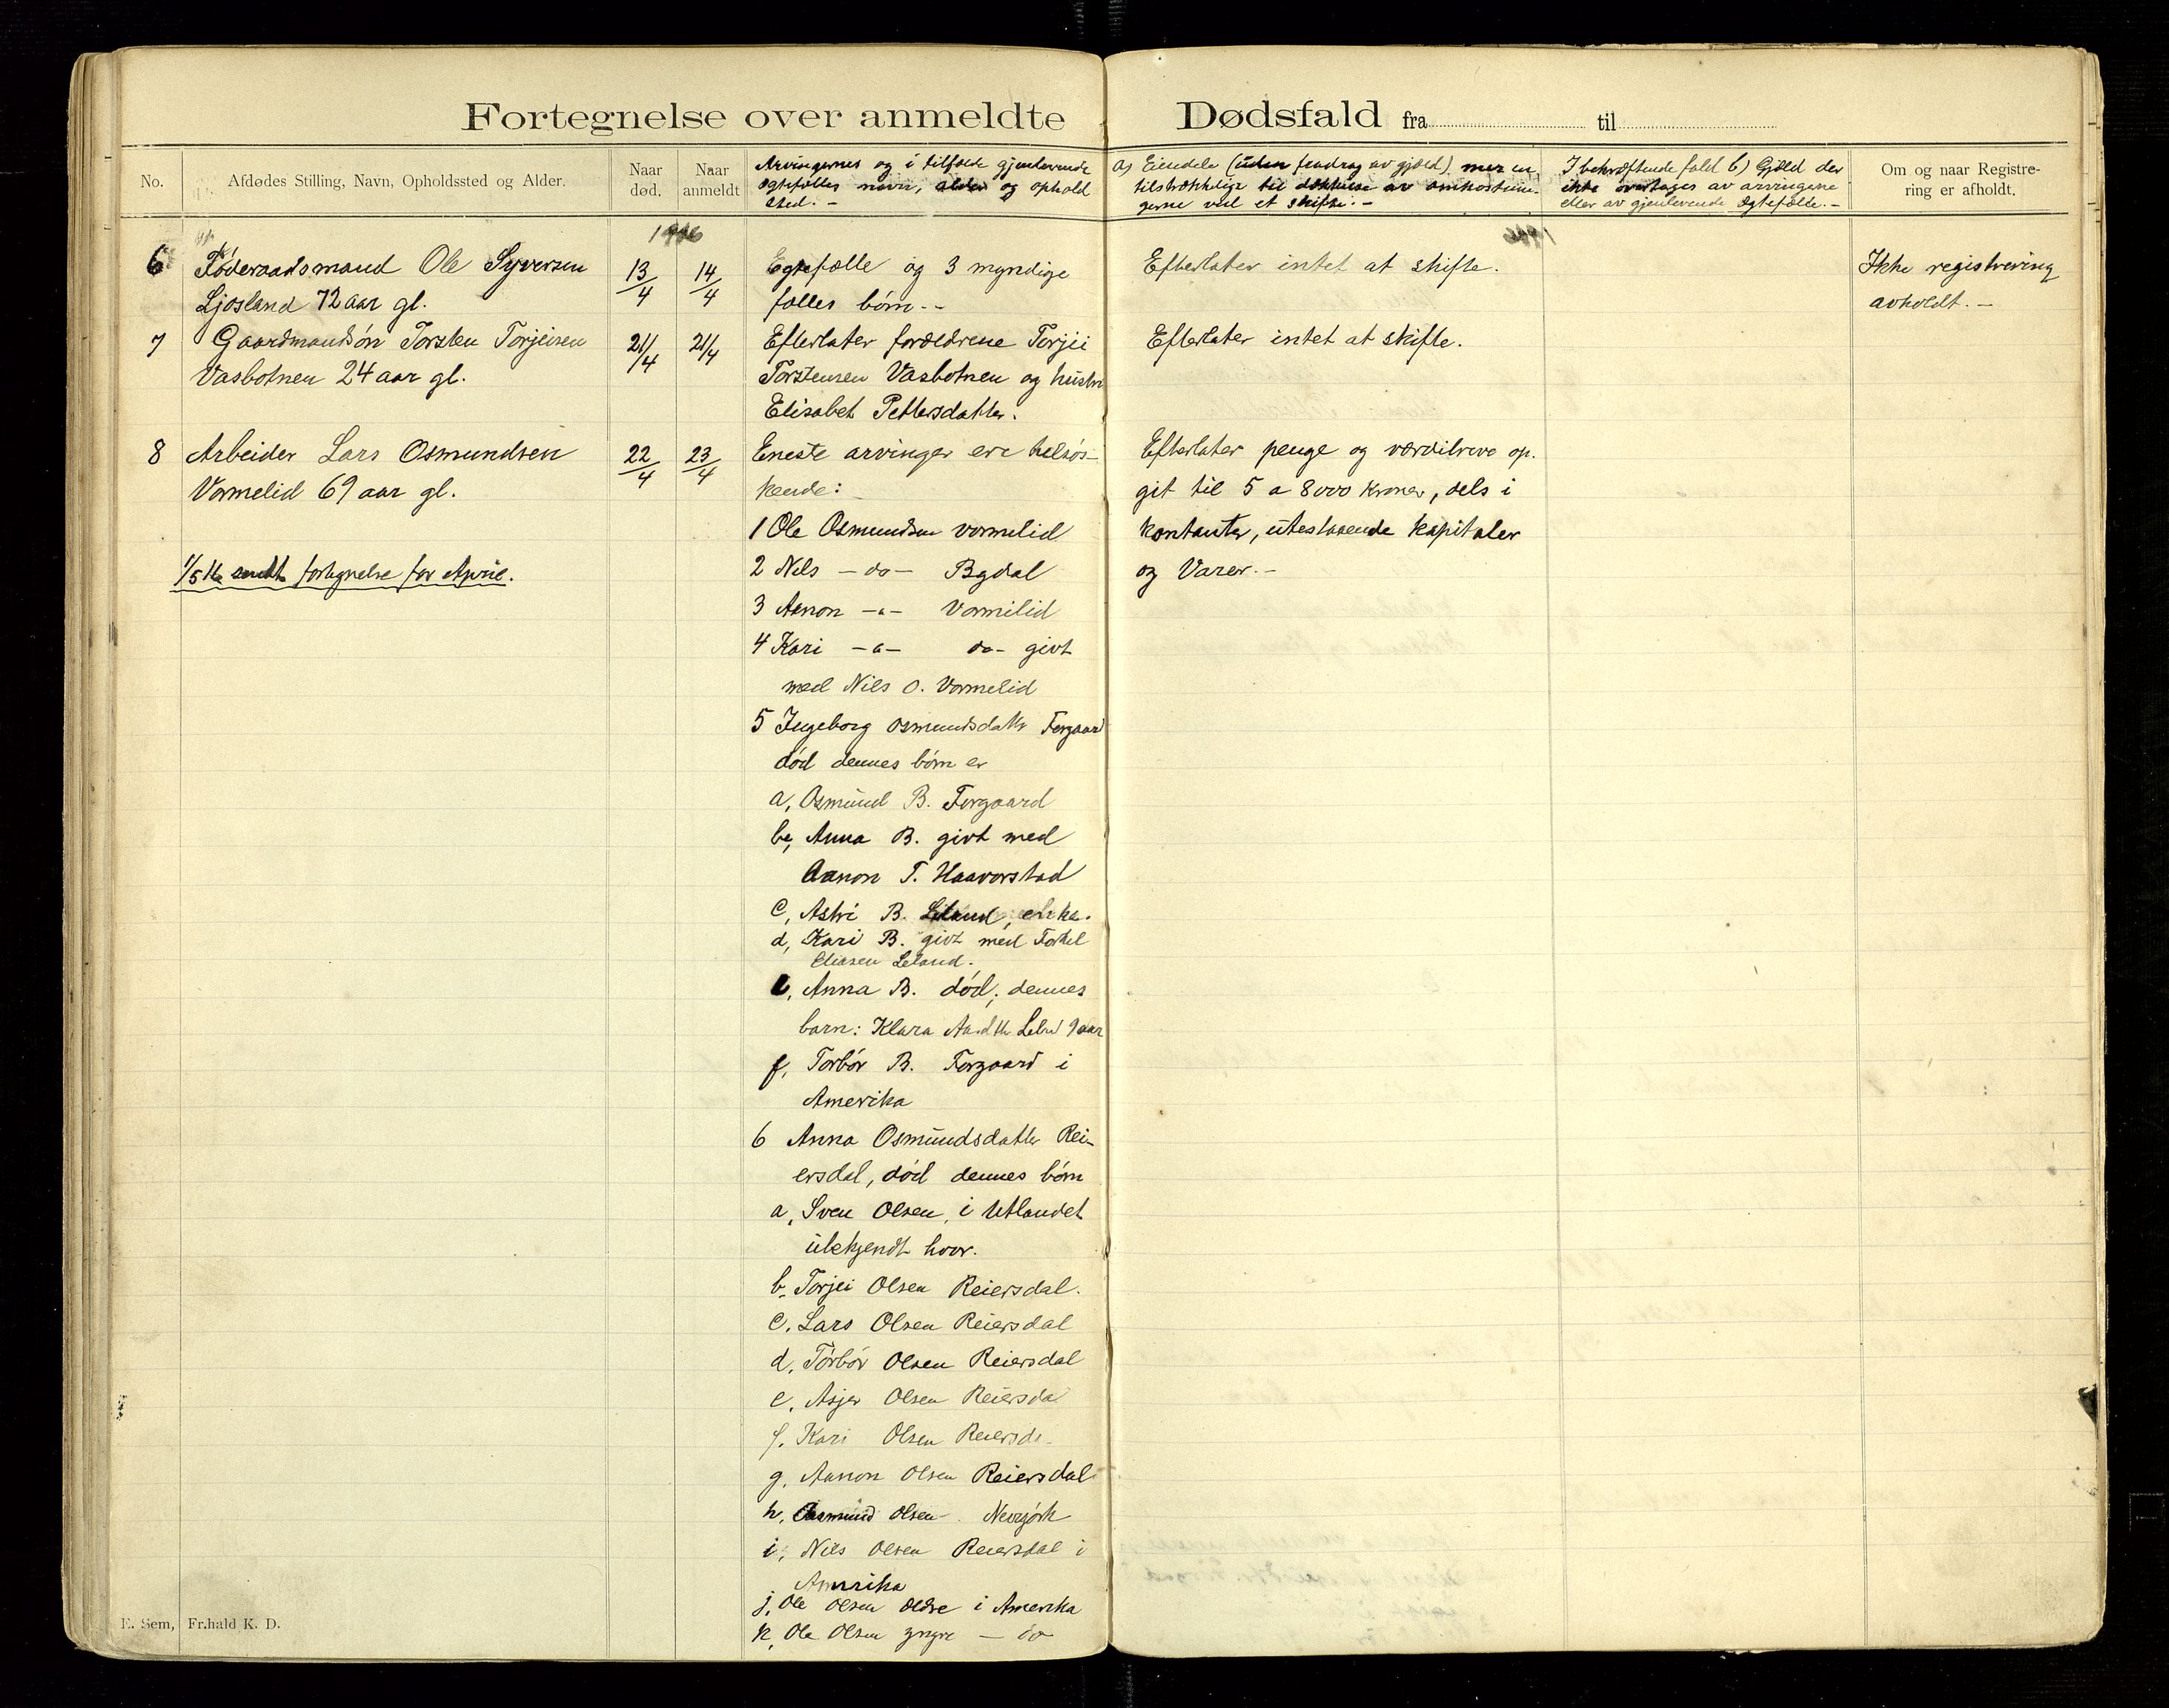 Fortegnelse over anmeldte Dødsfald fra til
No.
Afdødes Stilling, Navn, Opholdssted og Alder.
Naar død.
Naar anmeldt
Arvingernes og i tilfælde gjenlevende
ægtefælles navn, alder og ophold
sted. -
a) Eiendele (uden fradrag av gjæld) mer en
tilstrækkelige til dækkelse av omkostnin
gerne ved et skifte. -
I bekræftende fald b) Gjæld der
ikke overtages av arvingene
eller av gjenlevende ægtefælde. -
Om og naar Registre-
ring er afholdt.
1916
6 Føderaadsmand Ole Syversen
Ljosland 72 aar gl.
13/4 14/4
Egtefælle og 3 myndige
fælles børn. -
Efterlater intet at skifte.
Ikke registrering
avholdt. -
7 Gaardmandsøn Torsten Torjeisen
Vasbotnen 24 aar gl.
21/4 21/4
Efterlater forældrene Torjei
Torstensen Vasbotnen og hustru
Elisabet Pettersdatter.
Efterlater intet at skifte.
8 Arbeider Lars Osmundsen
Vormelid 69 aar gl.
22/4 23/4
1/5 16 sendt fortegnelse for April.
Eneste arvinger ere helsøs-
kende:
1 Ole Osmundsen Vormelid
2 Nils - do - Bygdal
3 Aanon - " - Vormelid
4 Kari - " - do - givt
med Nils O. Vormelid
5 Ingeborg Osmundsdatr Fergaard
død dennes børn er
a, Osmund B. Fergaard
b, Anna B. givt med
Aanon T. Haaverstad
c, Astri B. Leland, enke.
d, Kari B. givt med Torkel
Eliasen Leland.
e, Anna B. død; dennes
barn: Klara Leland 9 aar
f, Torbør B. Fergaard i
Amerika
6 Anna Osmundsdatter Rei-
ersdal, død dennes børn
a, Sven Olsen, i Utlandet
ubekjendt hvor.
b, Torjei Olsen Reiersdal.
c. Lars Olsen Reiersdal
d, Torbør Olsen Reiersdal
e, Asjer Olsen Reiersdal
f. Kari Olsen Reiersda
g. Aanon Olsen Reiersdal
h, Aasmund Olsen Newyork
i, Nils Olsen Reiersdal i
Amerika
j, Ole Olsen ældre i Amerika
k, Ole Olsen yngre - do
Efterlater penge og værdibreve op.
git til 5 a 8000 kroner, dels i
kontanter, utestaaende kapitaler
og Varer. -
E. Sem, Fr.hald K. D.